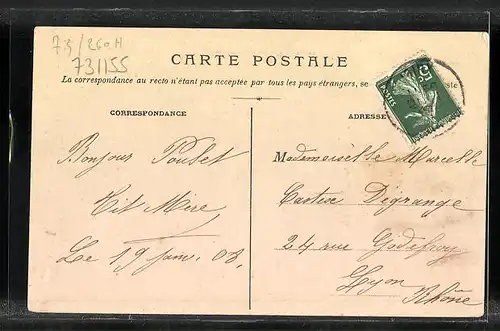 73/260H
731155
CARTE POSTALE
La correspondance au recto n'étant pas acceptée par tous les pays étrangers, se
CORRESPONDANCE
ADRESSE
5c
POSTES
Bonjour Poulet
Tit Mère
Le 19 janv. 08.
Mademoiselle Marcelle
Dégrange
24 rue Godefroy
Lyon
Rhône